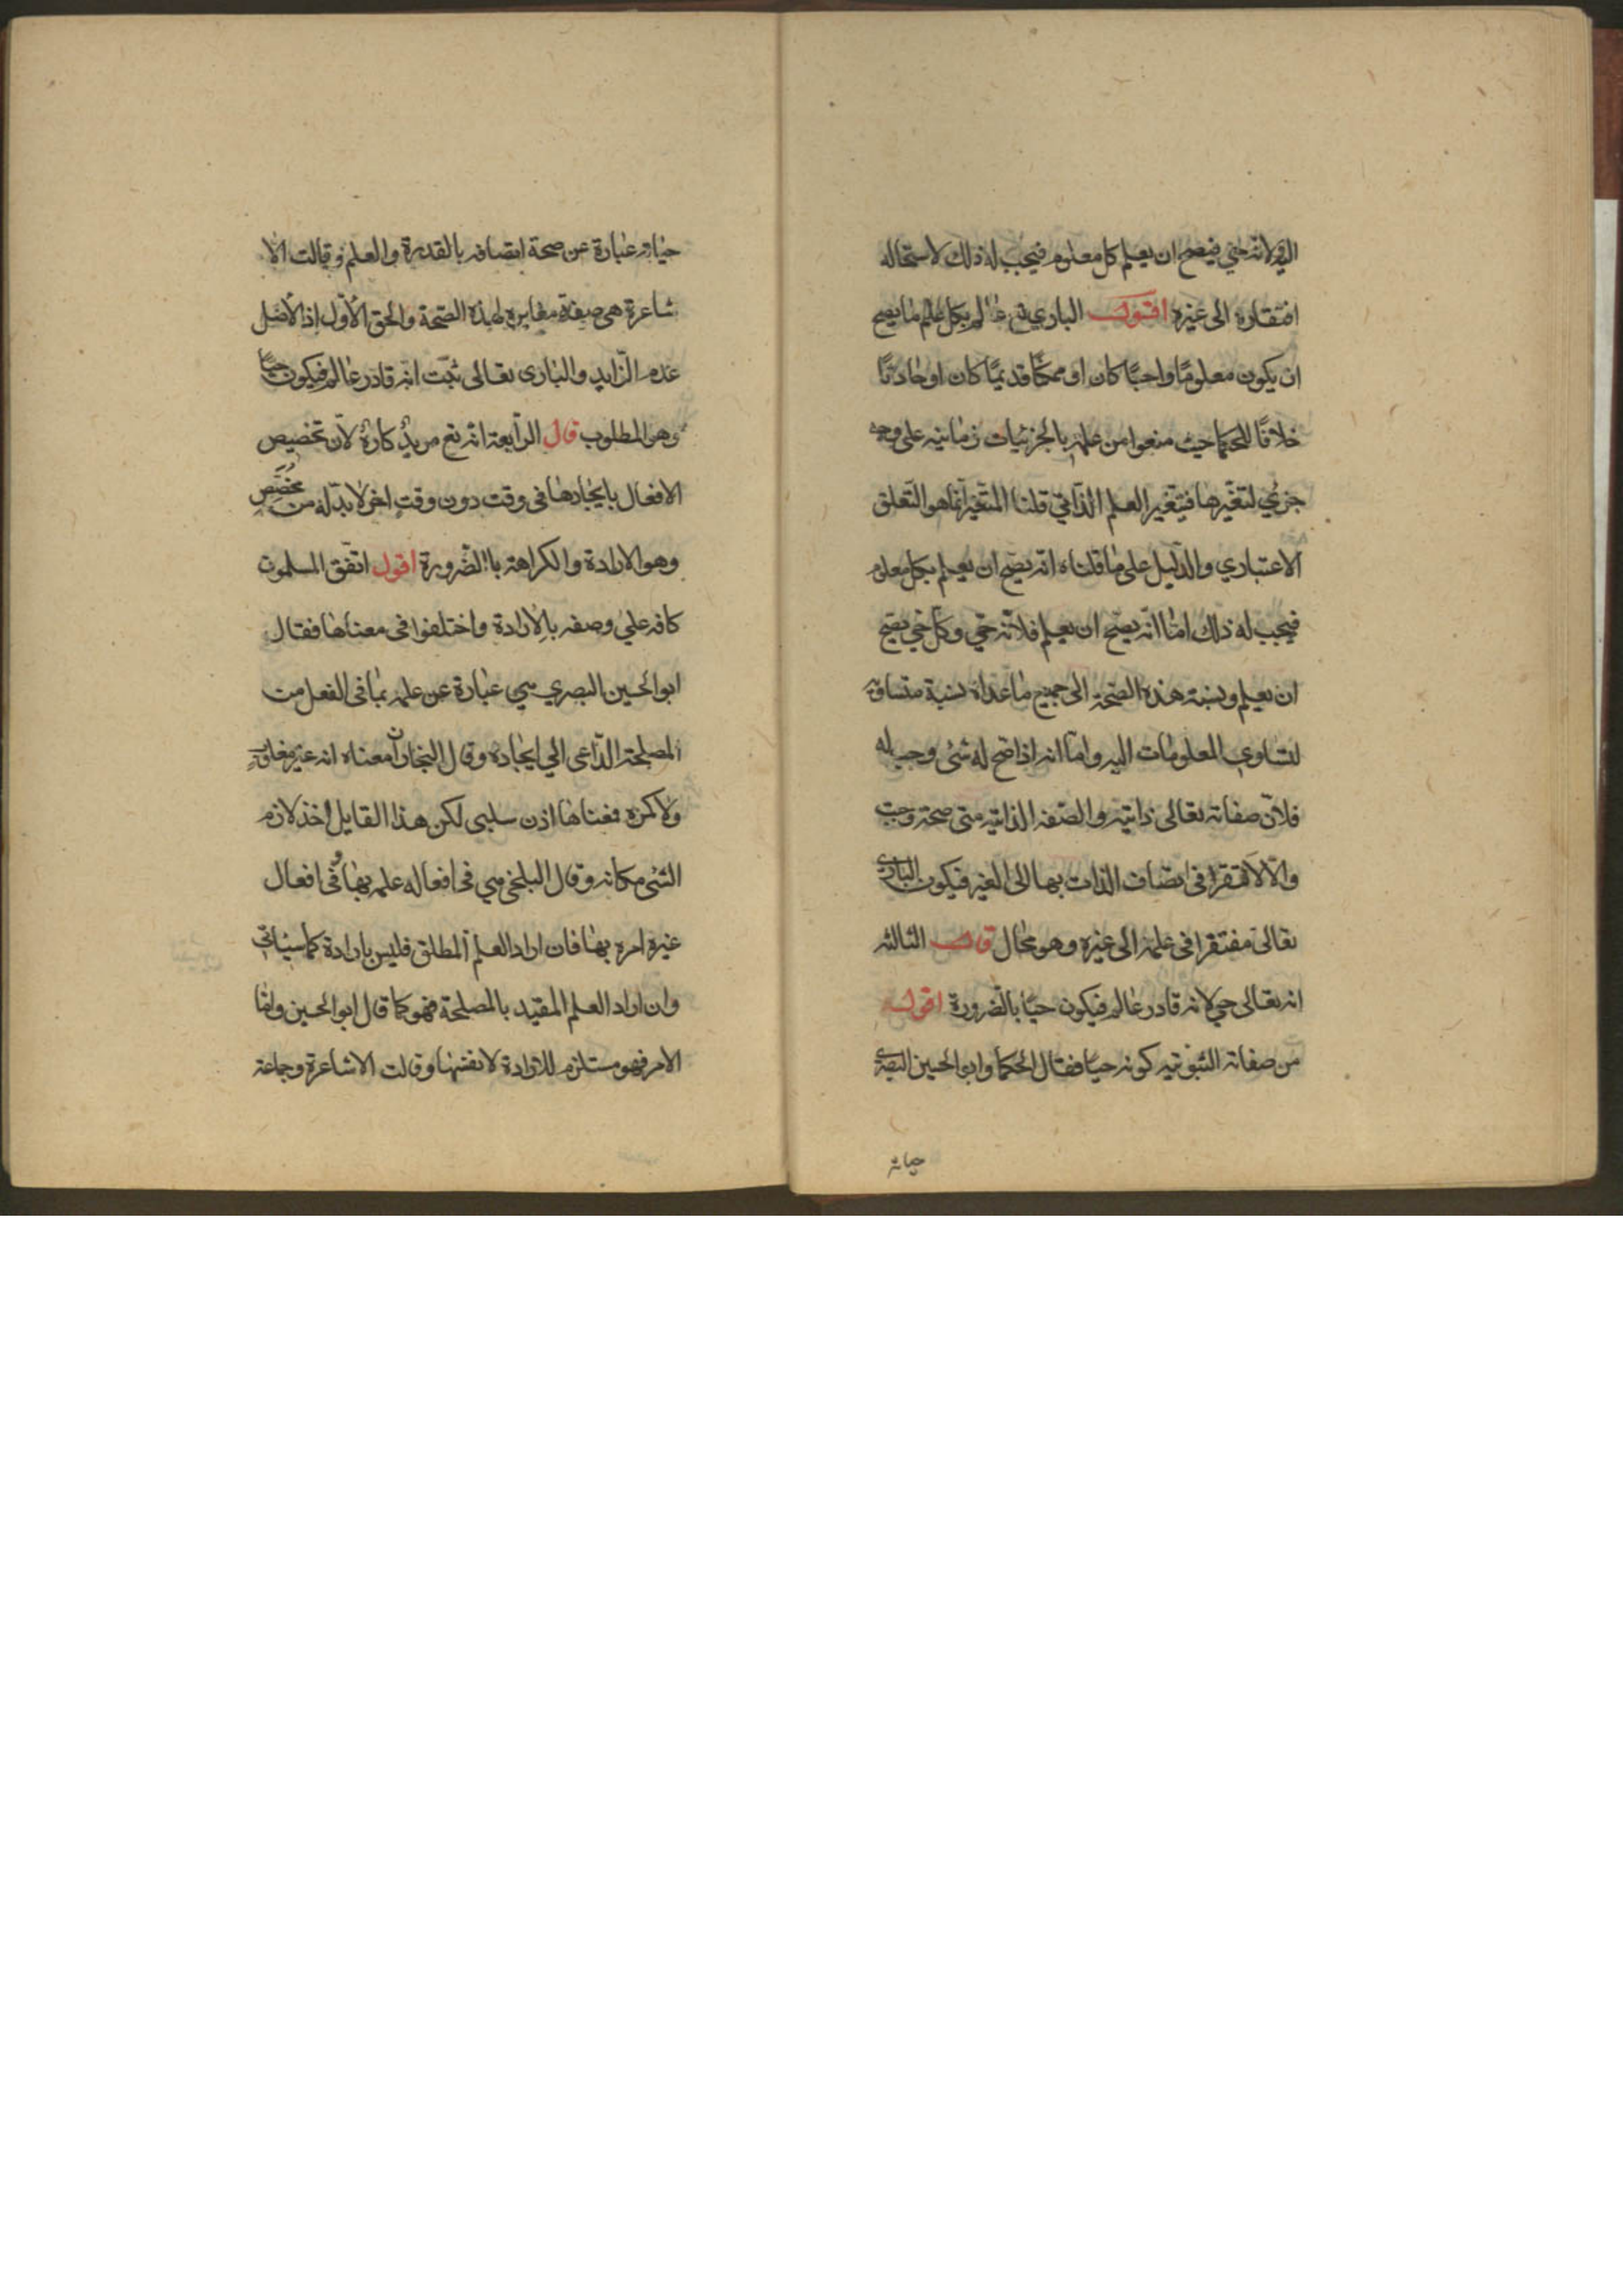 اليه لانه حي فيصح ان يعلم كل معلوم فيجب له ذلك لاستحاله
افتقاره الى غيره اقول الباري تع عالم بكل علم ما يصح
ان يكون معلومًا واجبًا كان او ممكنًا قديمًا كان او حادثًا
خلافًا للحكما حيث منعوا من علمه بالجزئيات زمانيه على وجه
جزئي لتغيرها فيتغير العلم الذاتي قلنا المتغير انما هو التعلق
الاعتباري والدليل على ما قلناه انه يصح ان يعلم بكل معلوم
فيجب له ذلك اما انه يصح ان يعلم فلانه حي وكل حي يصح
ان يعلم ونسبة هذه الصحة الى جميع ما عداه نسبة متساوية
لتساوي المعلومات اليه واما انه اذا صح له شئ وجب له
فلان صفاته تعالى ذاتيه والصفه الذاتيه متى صحة وجبت
والا لافتقر في اتصاف الذات بها الى الغير فيكون الباري
تعالى مفتقرا في علمه الى غيره وهو محال قال الثالثه
انه تعالى حي لانه قادر عالم فيكون حيًا بالضرورة اقول
من صفاته الثبوتيه كونه حيا فقال الحكما وابو الحسين البصري
حياته
حياته عبارة عن صحة اتصافه بالقدرة والعلم وقالت الا
شاعرة هي صفة مغايره لهذه الصحة والحق الأول إذ الأصل
عدم الزايد والباري تعالى ثبت انه قادر عالم فيكون حيًا
وهو المطلوب قال الرابعة انه تع مريد كاره لأن تخصيص
الافعال بايجادها في وقت دون وقت اخر لا بد له من مخصص
وهو الارادة والكراهة باالضرورة اقول اتفق المسلمون
كافه علي وصفه بالارادة واختلفوا في معناها فقال
ابو الحسين البصري هي عبارة عن علمه بما في الفعل من
المصلحة الداعي الي ايجاده وقال النجار ان معناه انه غير مغلوب
ولا مكره فمعناها اذن سلبي لكن هذا القايل اخذ لازم
الشئ مكانه وقال البلخي هي في افعاله علمه بها وفي افعال
غيره امره بها فان اراد العلم المطلق فليس بارادة كما سياتي
وان اراد العلم المقيد بالمصلحة فهو كما قال ابو الحسين واما
الامر فهو مستلزم للارادة لا نفسها وقالت الاشاعرة وجماعة